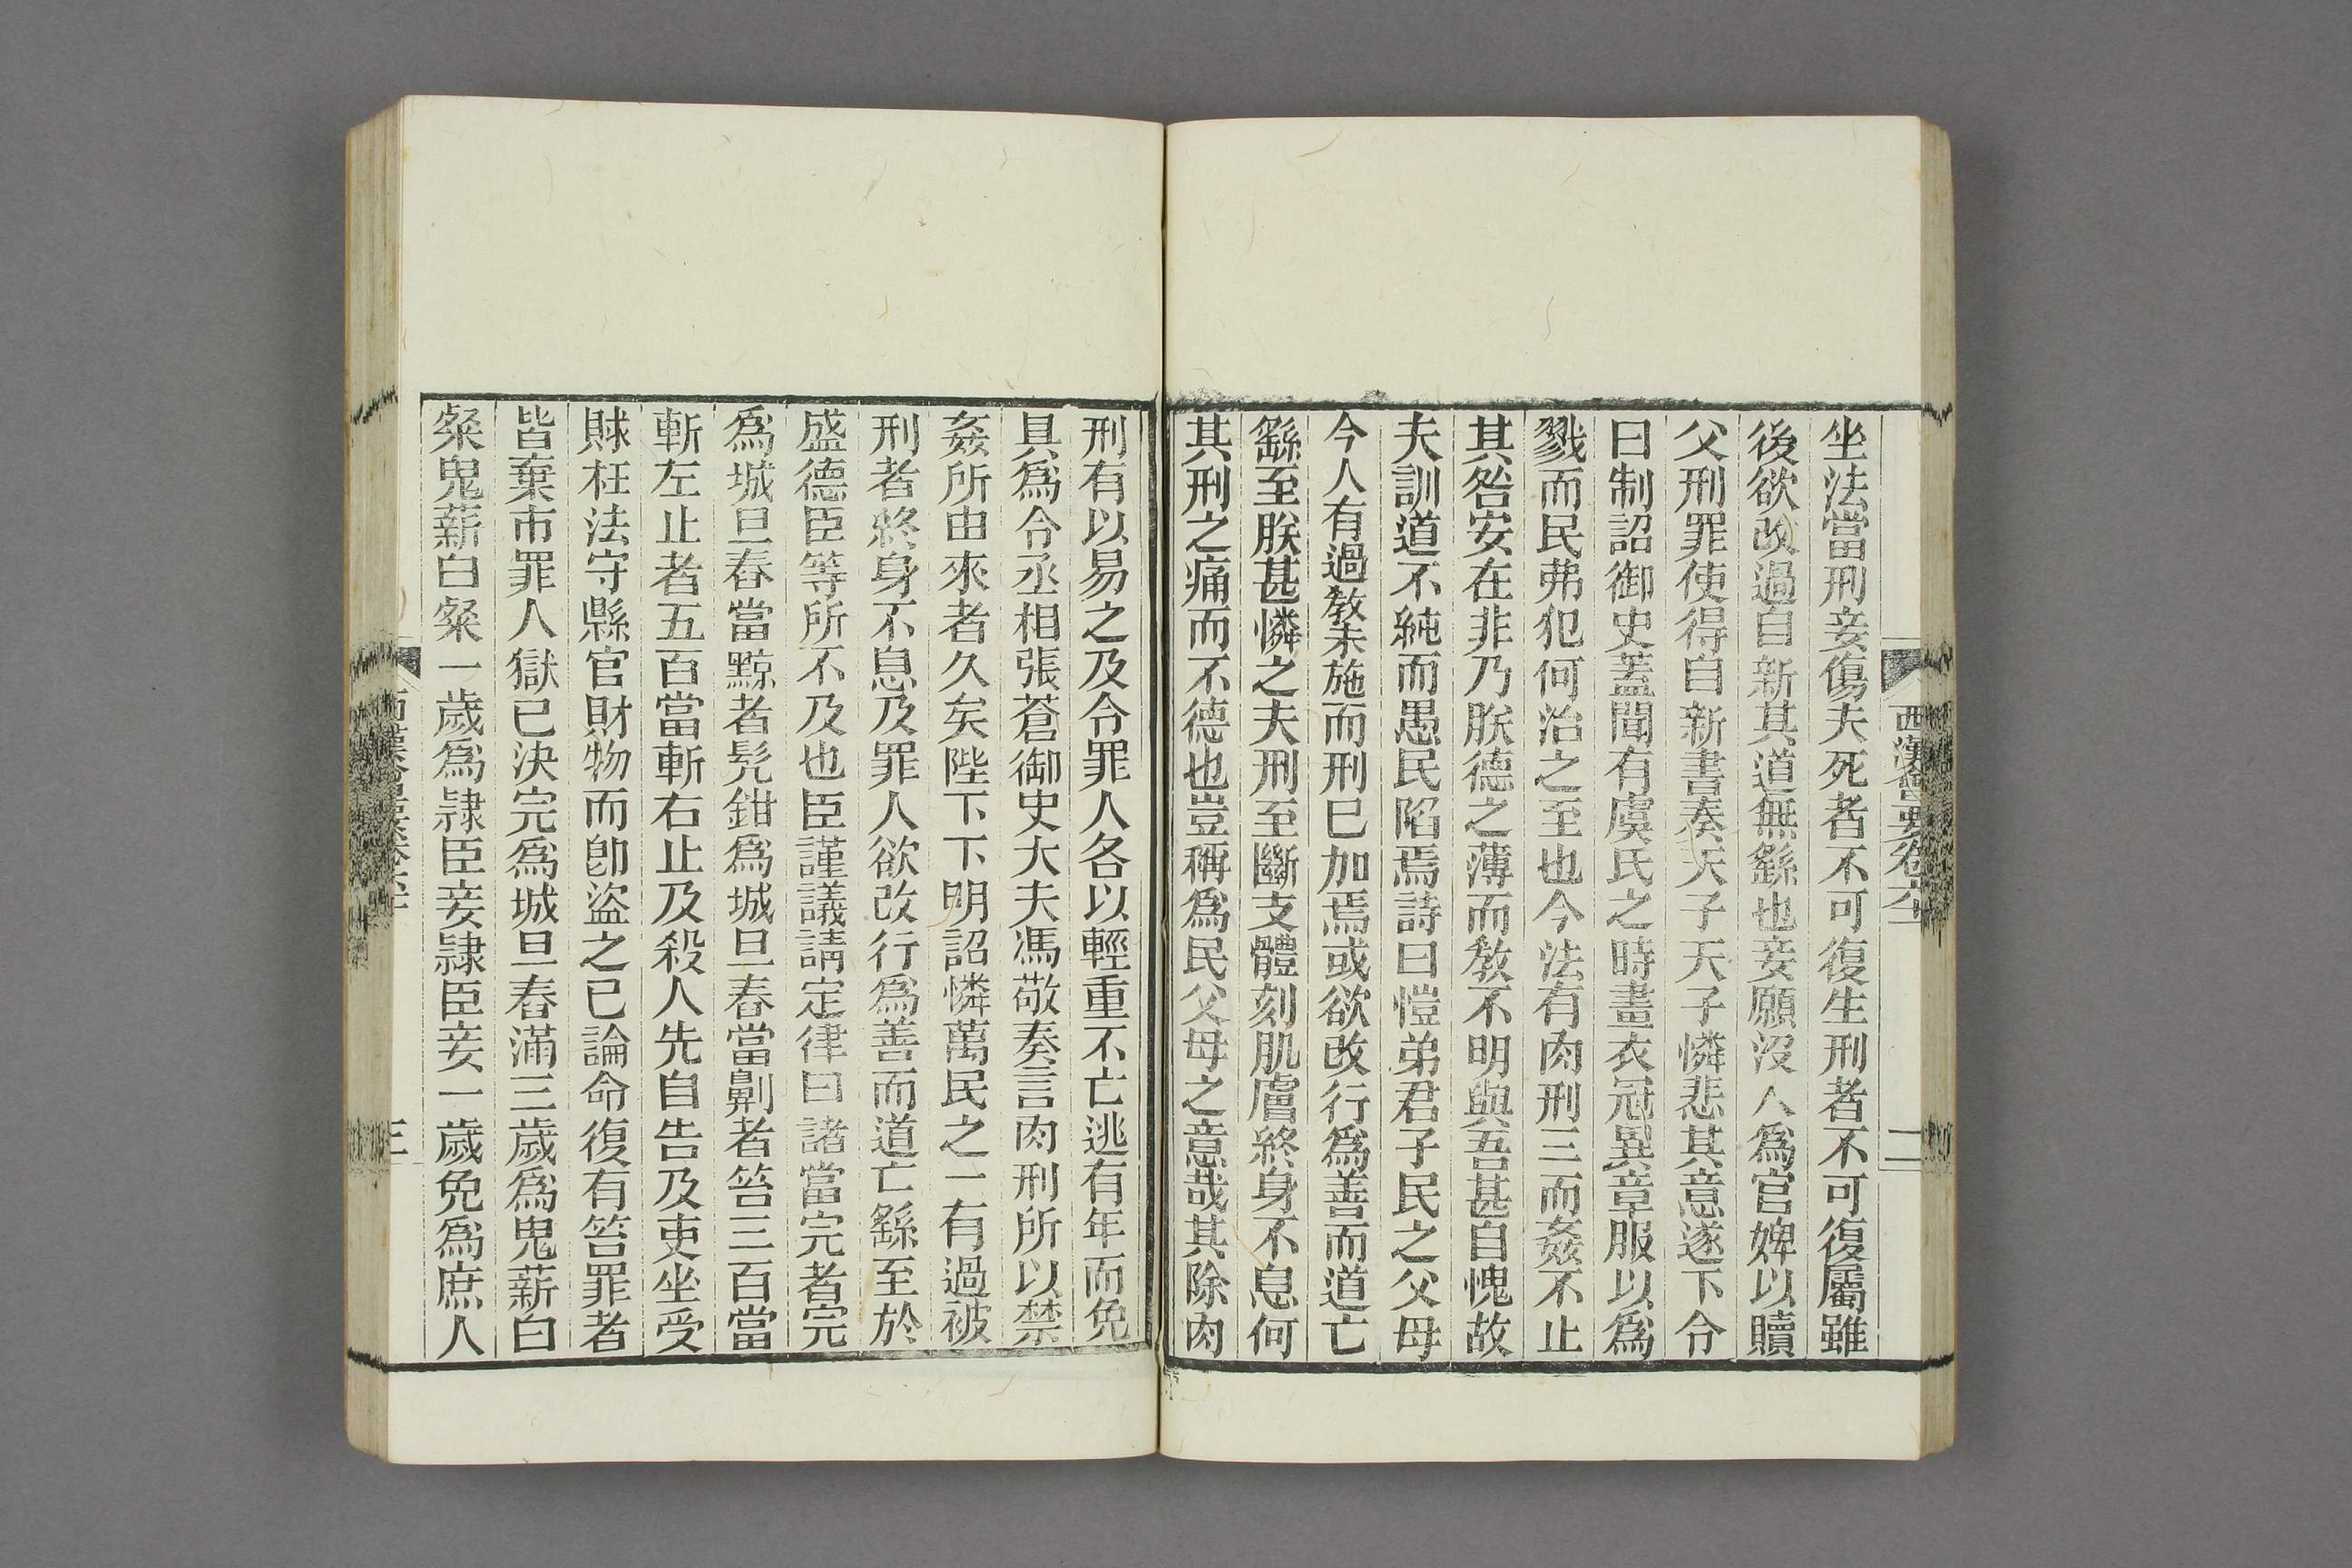 西漢會要卷六
二
坐法當刑妾傷夫死者不可復生刑者不可復屬雖
後欲改過自新其道無繇也妾願沒入爲官婢以贖
父刑罪使得自新書奏天子天子憐悲其意遂下令
曰制詔御史蓋聞有虞氏之時畫衣冠異章服以爲
戮而民弗犯何治之至也今法有肉刑三而姦不止
其咎安在非乃朕德之薄而敎不明與吾甚自愧故
夫訓道不純而愚民陷焉詩曰愷弟君子民之父母
今人有過敎未施而刑已加焉或欲改行爲善而道亡
繇至朕甚憐之夫刑至斷支體刻肌膚終身不息何
其刑之痛而不德也豈稱爲民父母之意哉其除肉
刑有以易之及令罪人各以輕重不亡逃有年而免
具爲令丞相張蒼御史大夫馮敬奏言肉刑所以禁
姦所由來者久矣陛下下明詔憐萬民之一有過被
刑者終身不息及罪人欲改行爲善而道亡繇至於
盛德臣等所不及也臣謹議請定律曰諸當完者完
爲城旦舂當黥者髡鉗爲城旦舂當劓者笞三百當
斬左止者五百當斬右止及殺人先自告及吏坐受
賕枉法守縣官財物而卽盜之已論命復有笞罪者
皆棄市罪人獄已決完爲城旦舂滿三歲爲鬼薪白
粲鬼薪白粲一歲爲隷臣妾隷臣妾一歲免爲庶人
三